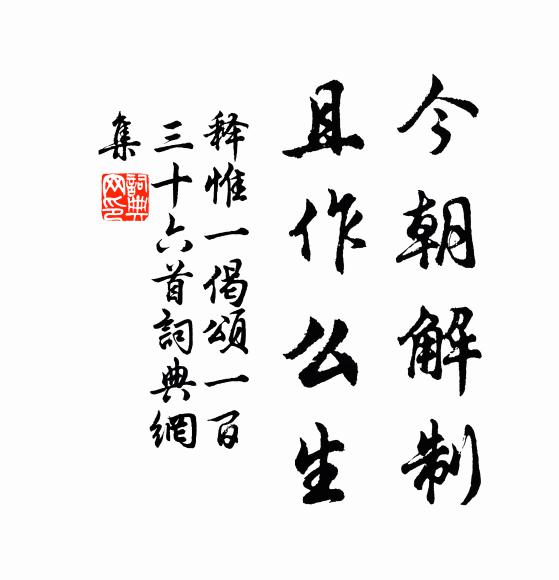 今朝解制
且作么生
释惟一偈颂一百
三十六首詞典網
集
詞典
网印